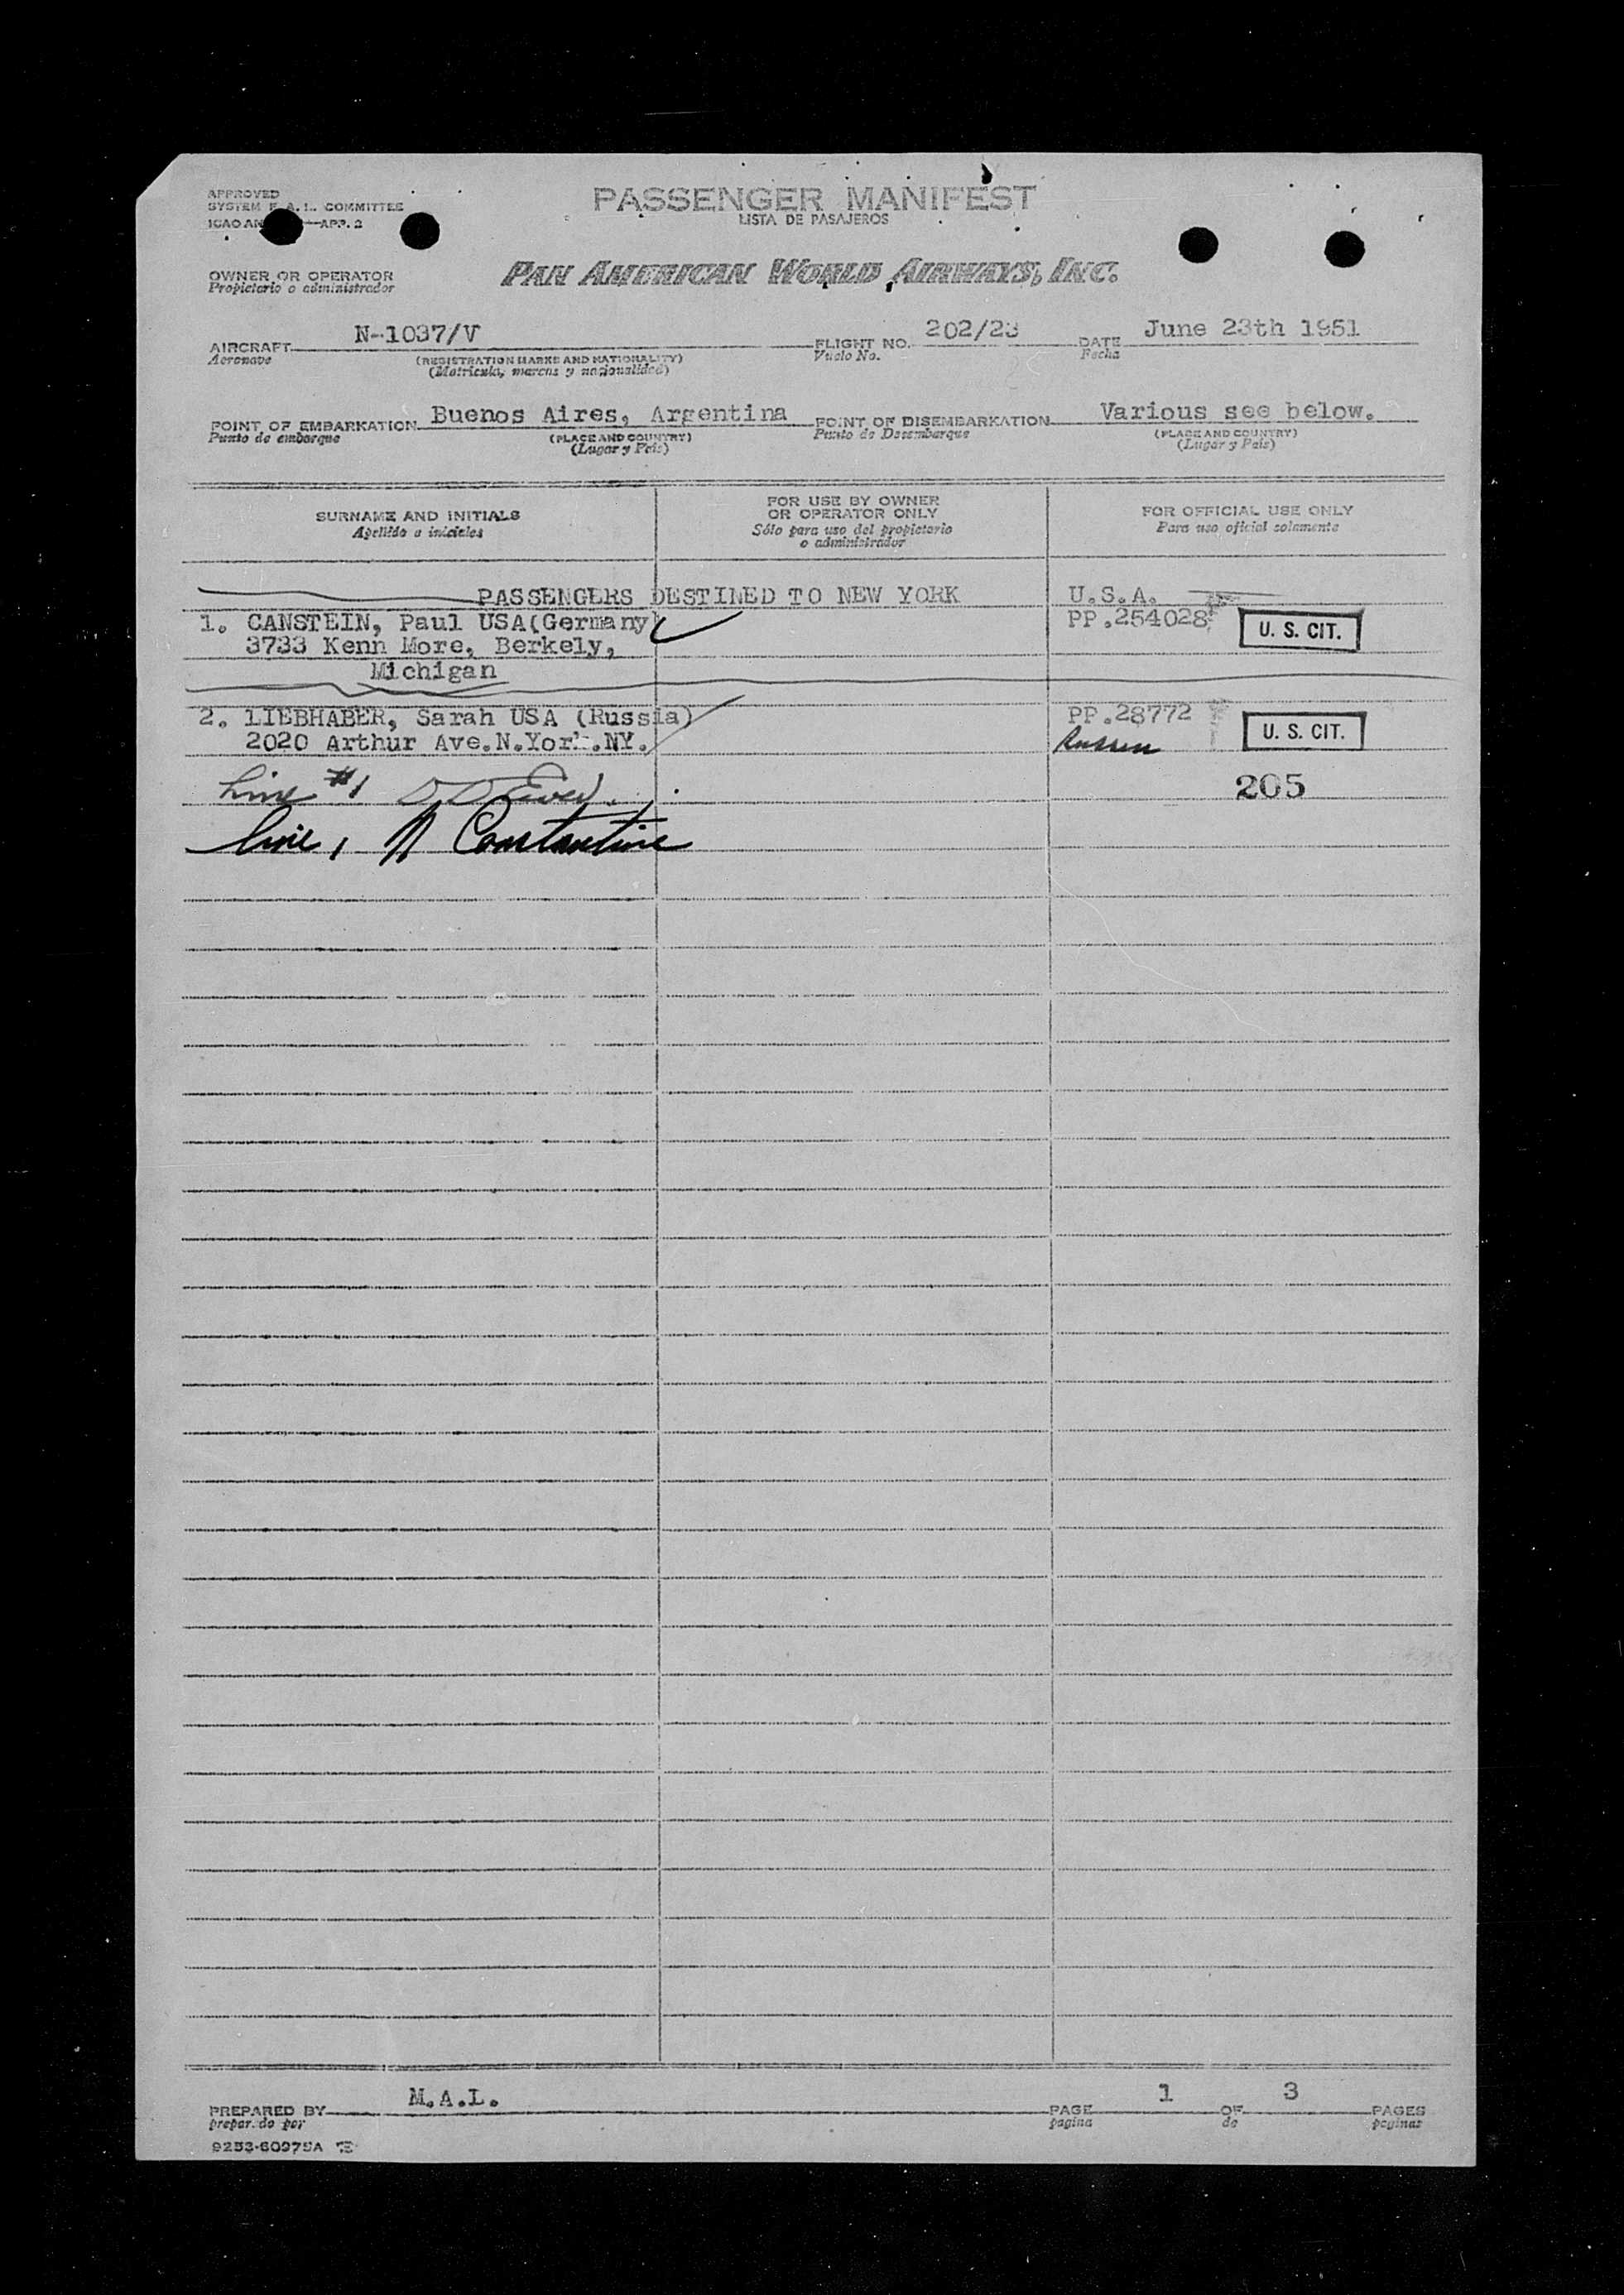 APPROVED
SYSTEM F. A. L. COMMITTEE
ICAO AN APP. 2
PASSENGER MANIFEST
LISTA DE PASAJEROS
OWNER OR OPERATOR
Propietario o administrador
PAN AMERICAN WORLD AIRWAYS, INC.
AIRCRAFT N-1037/V FLIGHT NO. 202/23 DATE June 23th 1951
Aeronave (REGISTRATION MARKS AND NATIONALITY) Vuelo No. Fecha
(Matricula, marcas y nacionalidad)
POINT OF EMBARKATION Buenos Aires, Argentina POINT OF DISEMBARKATION Various see below.
Punto de embarque (PLACE AND COUNTRY) Punto de Desembarque (PLACE AND COUNTRY)
(Lugar y Pais) (Lugar y Pais)
SURNAME AND INITIALS
Apellido e iniciales
FOR USE BY OWNER
OR OPERATOR ONLY
Sólo para uso del propietario
o administrador
FOR OFFICIAL USE ONLY
Para uso oficial solamente
PASSENGERS DESTINED TO NEW YORK U.S.A.
1. CANSTEIN, Paul USA(Germany) PP.254028 U. S. CIT.
3733 Kenn More, Berkely,
Michigan
2. LIEBHABER, Sarah USA (Russia) PP.28772 U. S. CIT.
2020 Arthur Ave.N.York.NY.
Line #1
205
line 1 Constantine
PREPARED BY M.A.L. PAGE 1 OF 3 PAGES
prepar.do por pagina de paginas
9253-60975A